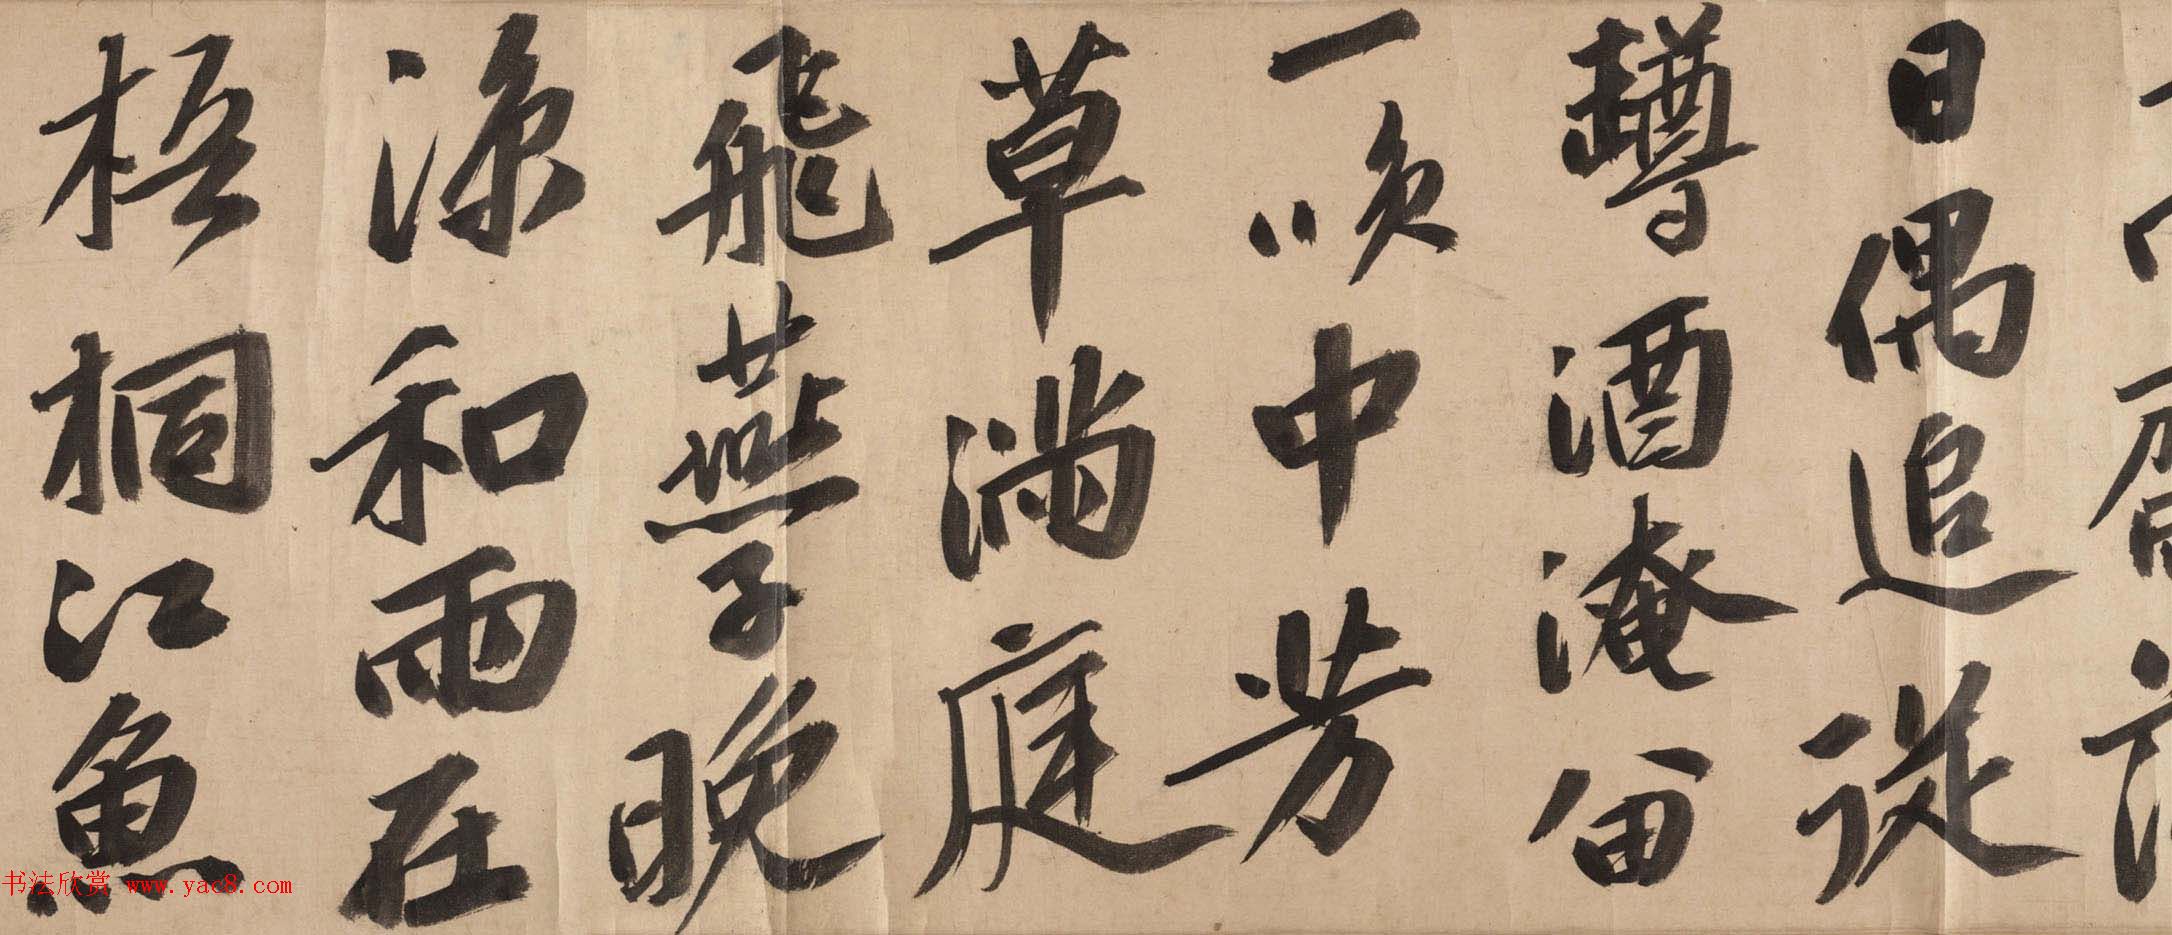 日偶追從
罇酒淹留
一笑中芳
草滿庭
飛燕子晚
涼和雨在
梧桐江魚
书法欣赏 www.yac8.com